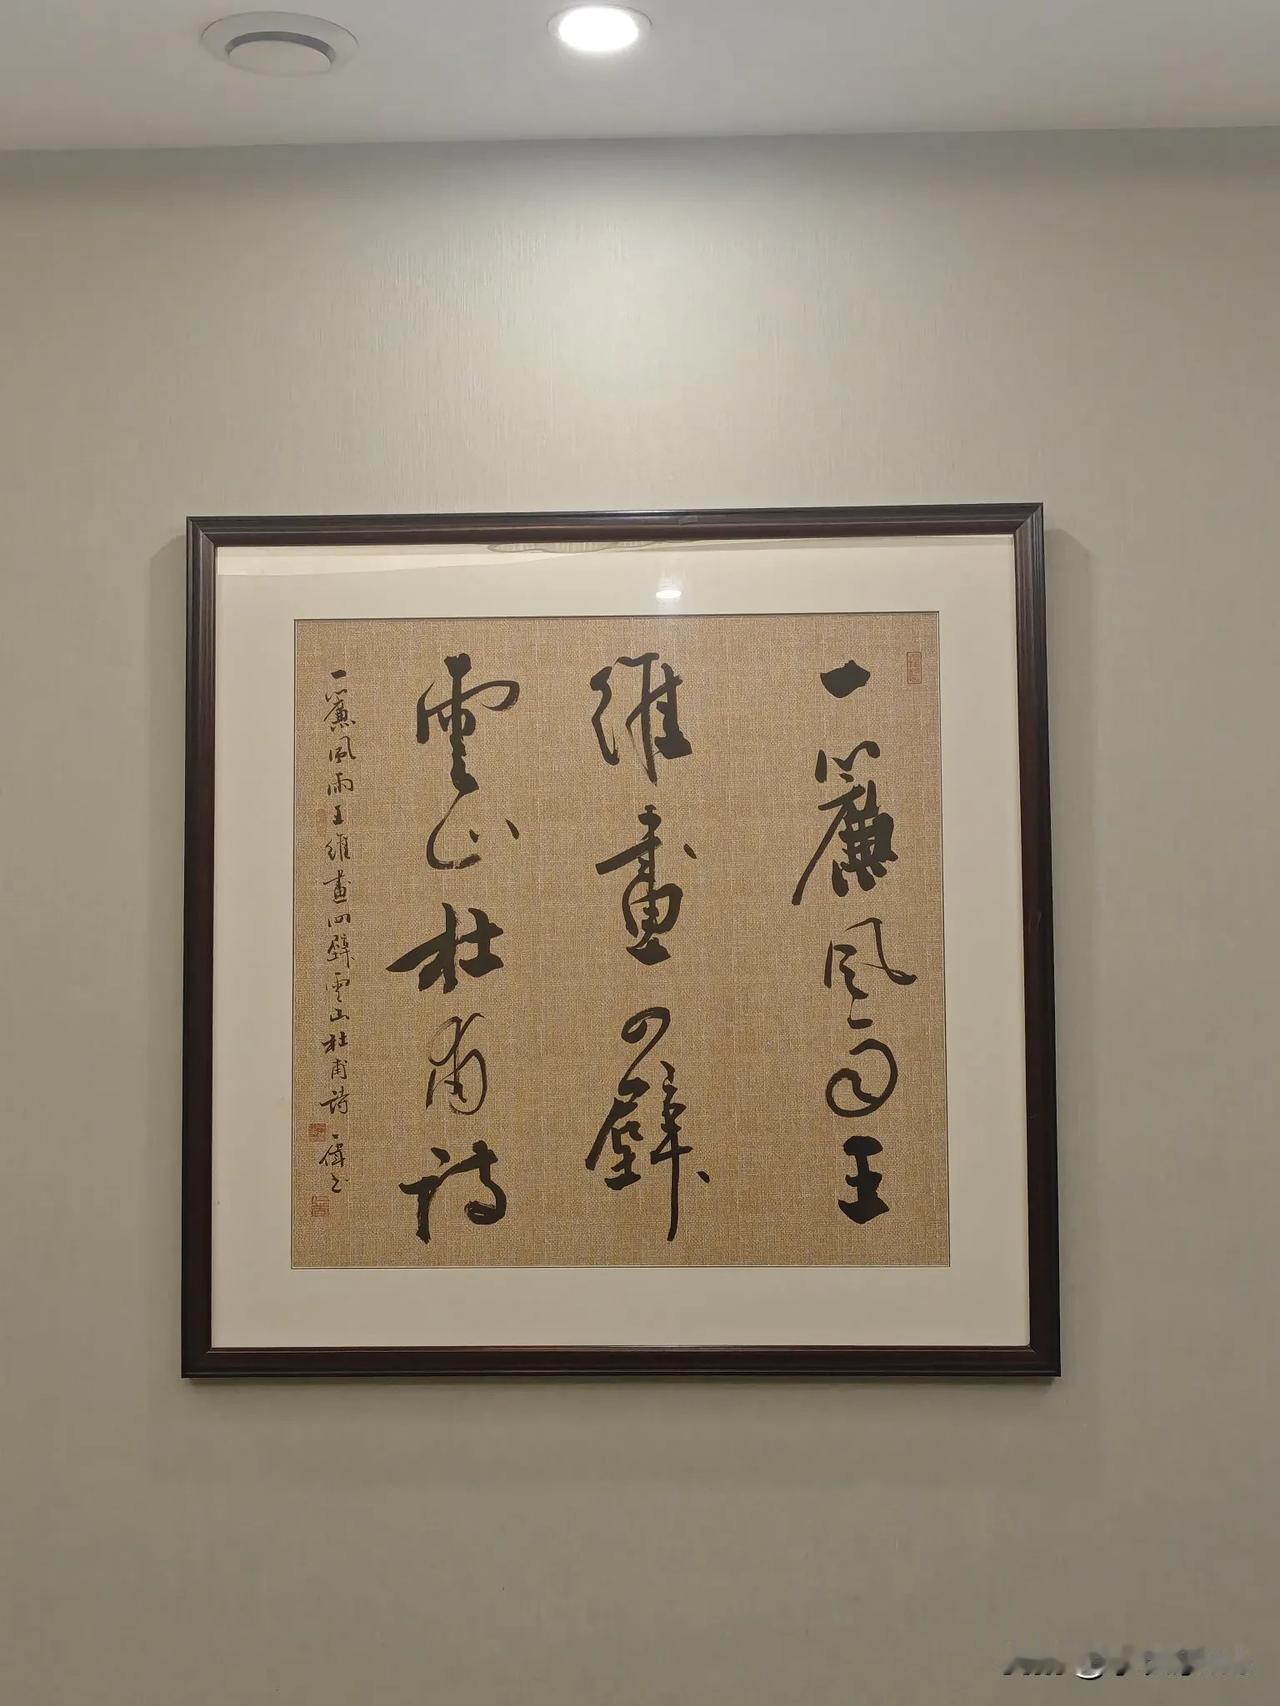 一簾風雨王
維畫四壁
雲山杜甫詩
一簾風雨王維畫四壁雲山杜甫詩